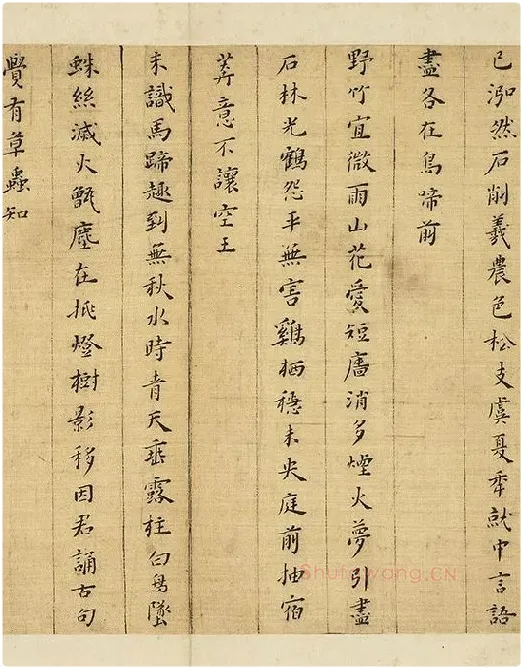 已泓然石削羲農色松支虞夏年就中言語
盡各在鳥啼前
野竹宜微雨山花愛短牆消多煙火夢引盡
石林光鶴怨平無害雞栖穩未央庭前抽宿
莽意不讓空王
未識馬蹄趣到無秋水時青天垂露柱白鳥墜
蛛絲滅火甑塵在挑燈樹影移因君誦古句
覺有草蟲知
Shufawang.CN